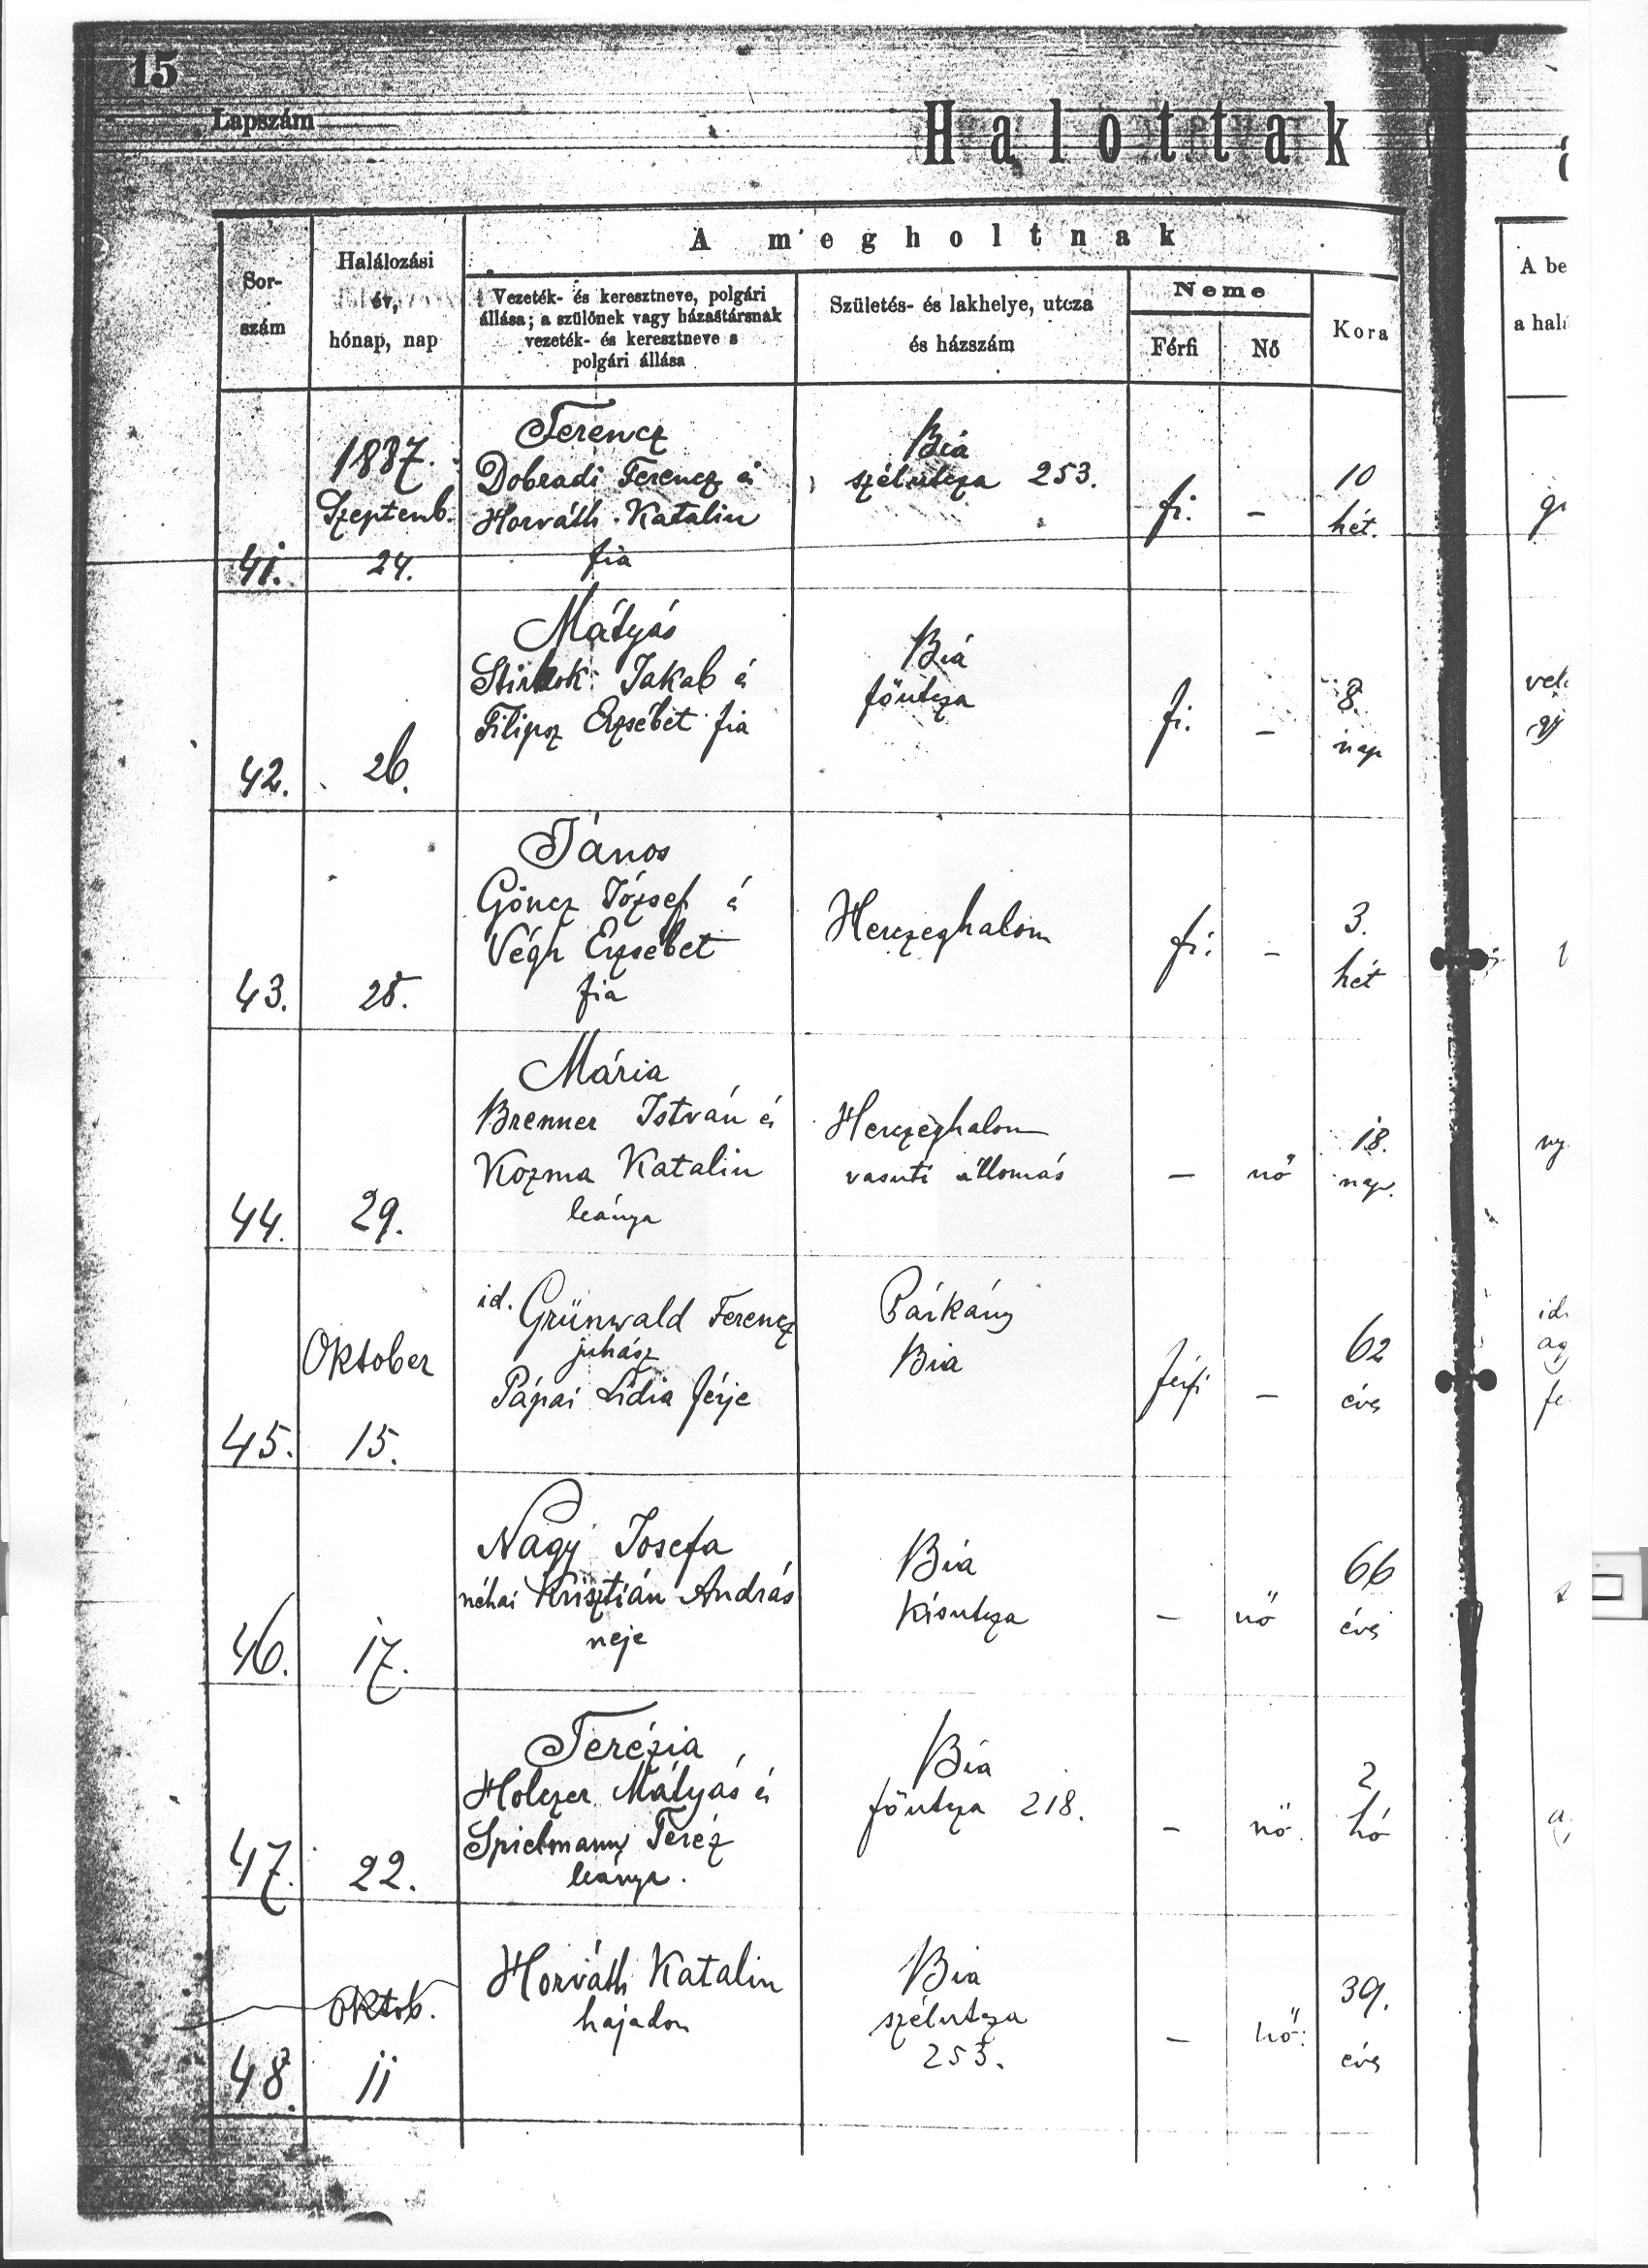 15
Lapszám
Halottak
A megholtnak
Sor-
szám
Halálozási
év,
hónap, nap
Vezeték- és keresztneve, polgári
állása; a szülőnek vagy házastársnak
vezeték- és keresztneve s
polgári állása
Születés- és lakhelye, utcza
és házszám
Neme
Férfi
Nő
Kora
A be
a halá
41.
1887.
Szeptemb.
24.
Ferencz
Dobradi Ferencz és
Horváth Katalin
fia
Bia
szélutcza 253.
fi.
-
10
hét.
42.
26.
Mátyás
Jakab és
Filipsz Erzsébet fia
Biá
főutcza
fi.
-
8.
nap
43.
János
Göncz József és
Végh Erzsébet
fia
Herczeghalom
fi.
-
3.
hét
44.
29.
Mária
Brenner István és
Kozma Katalin
leánya
Herczeghalom
vasuti állomás
-
nő
18.
nap.
45.
Oktober
15.
id. Grünwald Ferencz
juhász
Pápai Lidia férje
Párkány
Bia
férfi
-
62
éves
46.
17.
Nagy Josefa
néhai Krisztián András
neje
Bia
Kisutcza
-
nő
66
éves
47.
22.
Terézia
Holczer Mátyás és
Spielmann Teréz
leánya.
Bia
főutcza 218.
-
nő.
2
hó
48.
Oktob.
11
Horváth Katalin
hajadon
Bia
szélutcza
253.
-
nő:
39.
éves